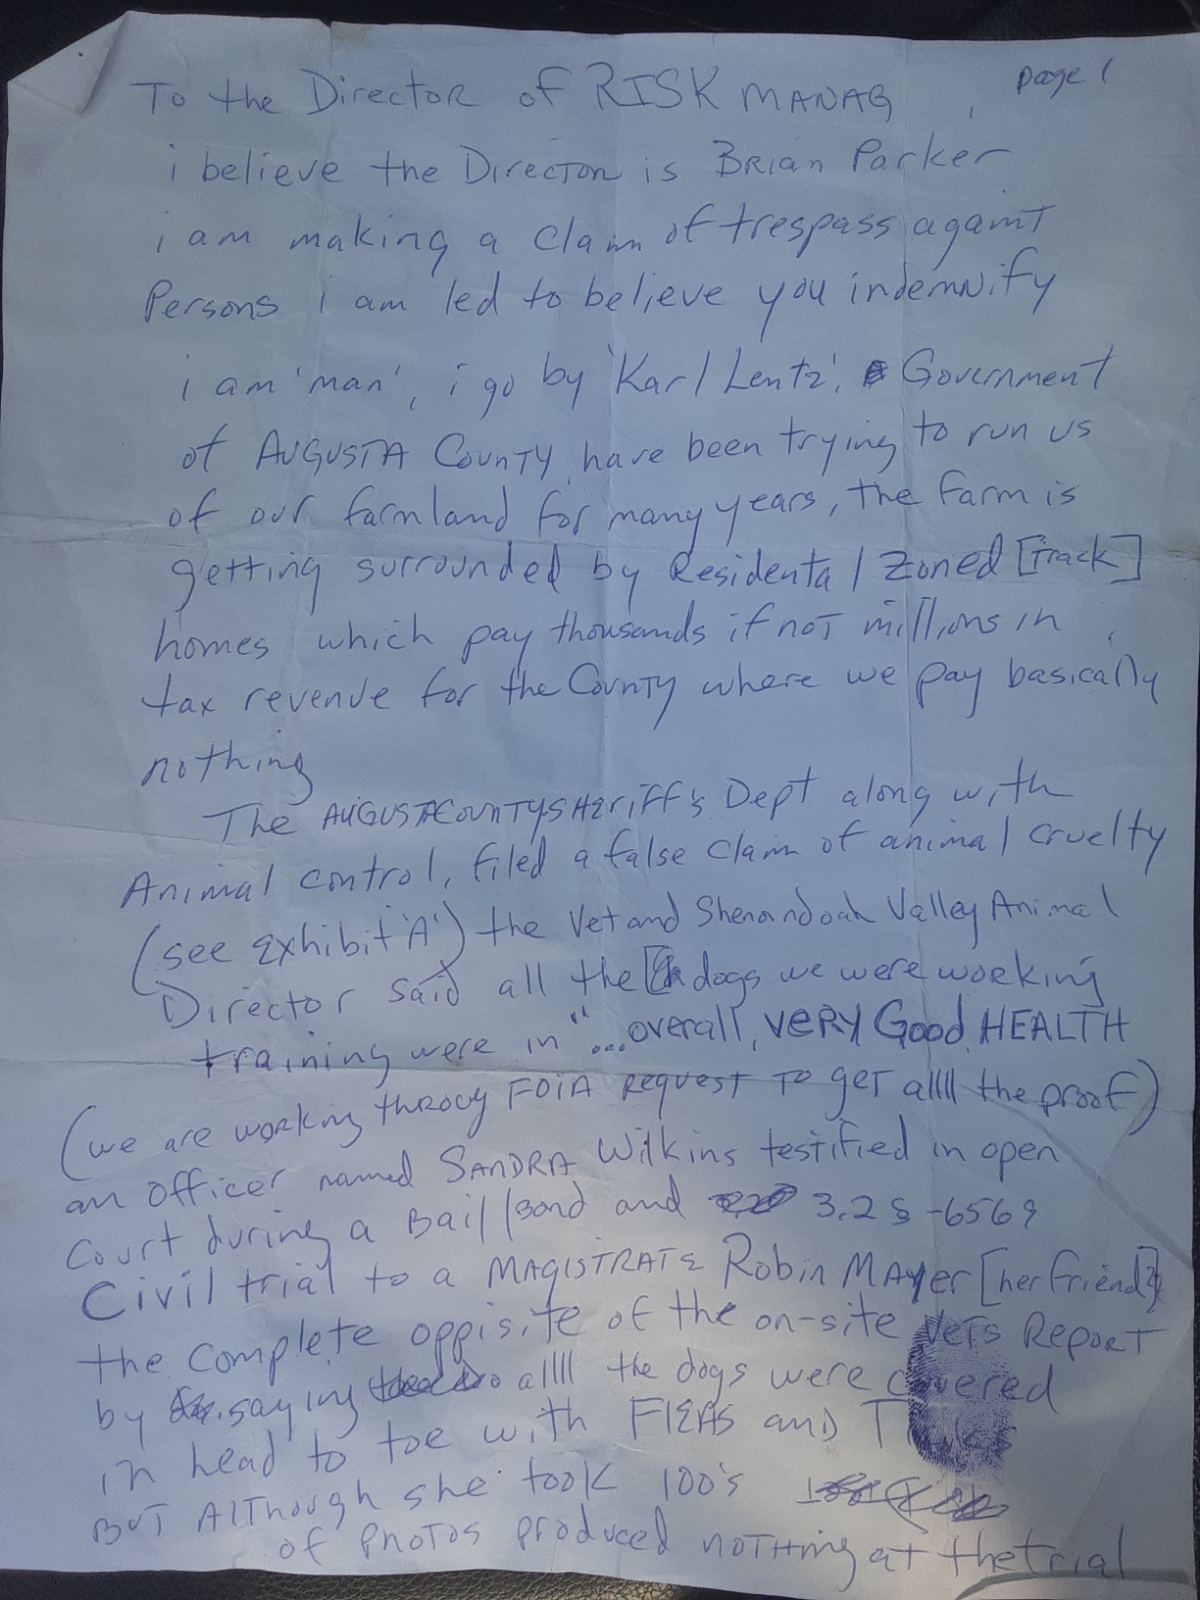 page 1
To the Director of RISK MANAG
i believe the Director is Brian Parker
i am making a claim of trespass against
Persons i am led to believe you indemnify
i am 'man', i go by 'Karl Lentz', Government
of AUGUSTA COUNTY have been trying to run us
of our farmland for many years, the farm is
getting surrounded by Residental Zoned [track]
homes which pay thousands if not millions in
tax revenue for the County where we pay basically
nothing
The AUGUSTA COUNTY SHERIFF's Dept along with
Animal control, filed a false claim of animal cruelty
(see exhibit 'A') the Vet and Shenandoah Valley Animal
Director said all the dogs we were working
training were in "...overall, VERY Good HEALTH
(we are working throug FOIA REQUEST TO get allll the proof)
an officer named SANDRA Wilkins testified in open
Court during a Bail/Bond and 3.2 s -6569
Civil trial to a MAGISTRATE Robin MAyer [her friend?]
the Complete oppisite of the on-site Vets REPORT
by saying allll the dogs were covered
in head to toe with FlEAS and Ticks
BUT Although she took 100's
of Photos produced nothing at the trial